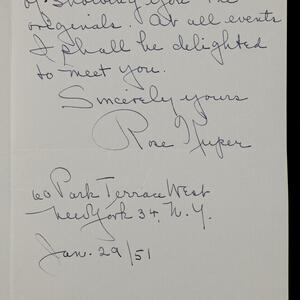 of showing you the
originals. At all events
I shall be delighted
to meet you.
Sincerely yours
Rose Kuper
60 Park Terrace West
New York 34, N.Y.
Jan. 29/51